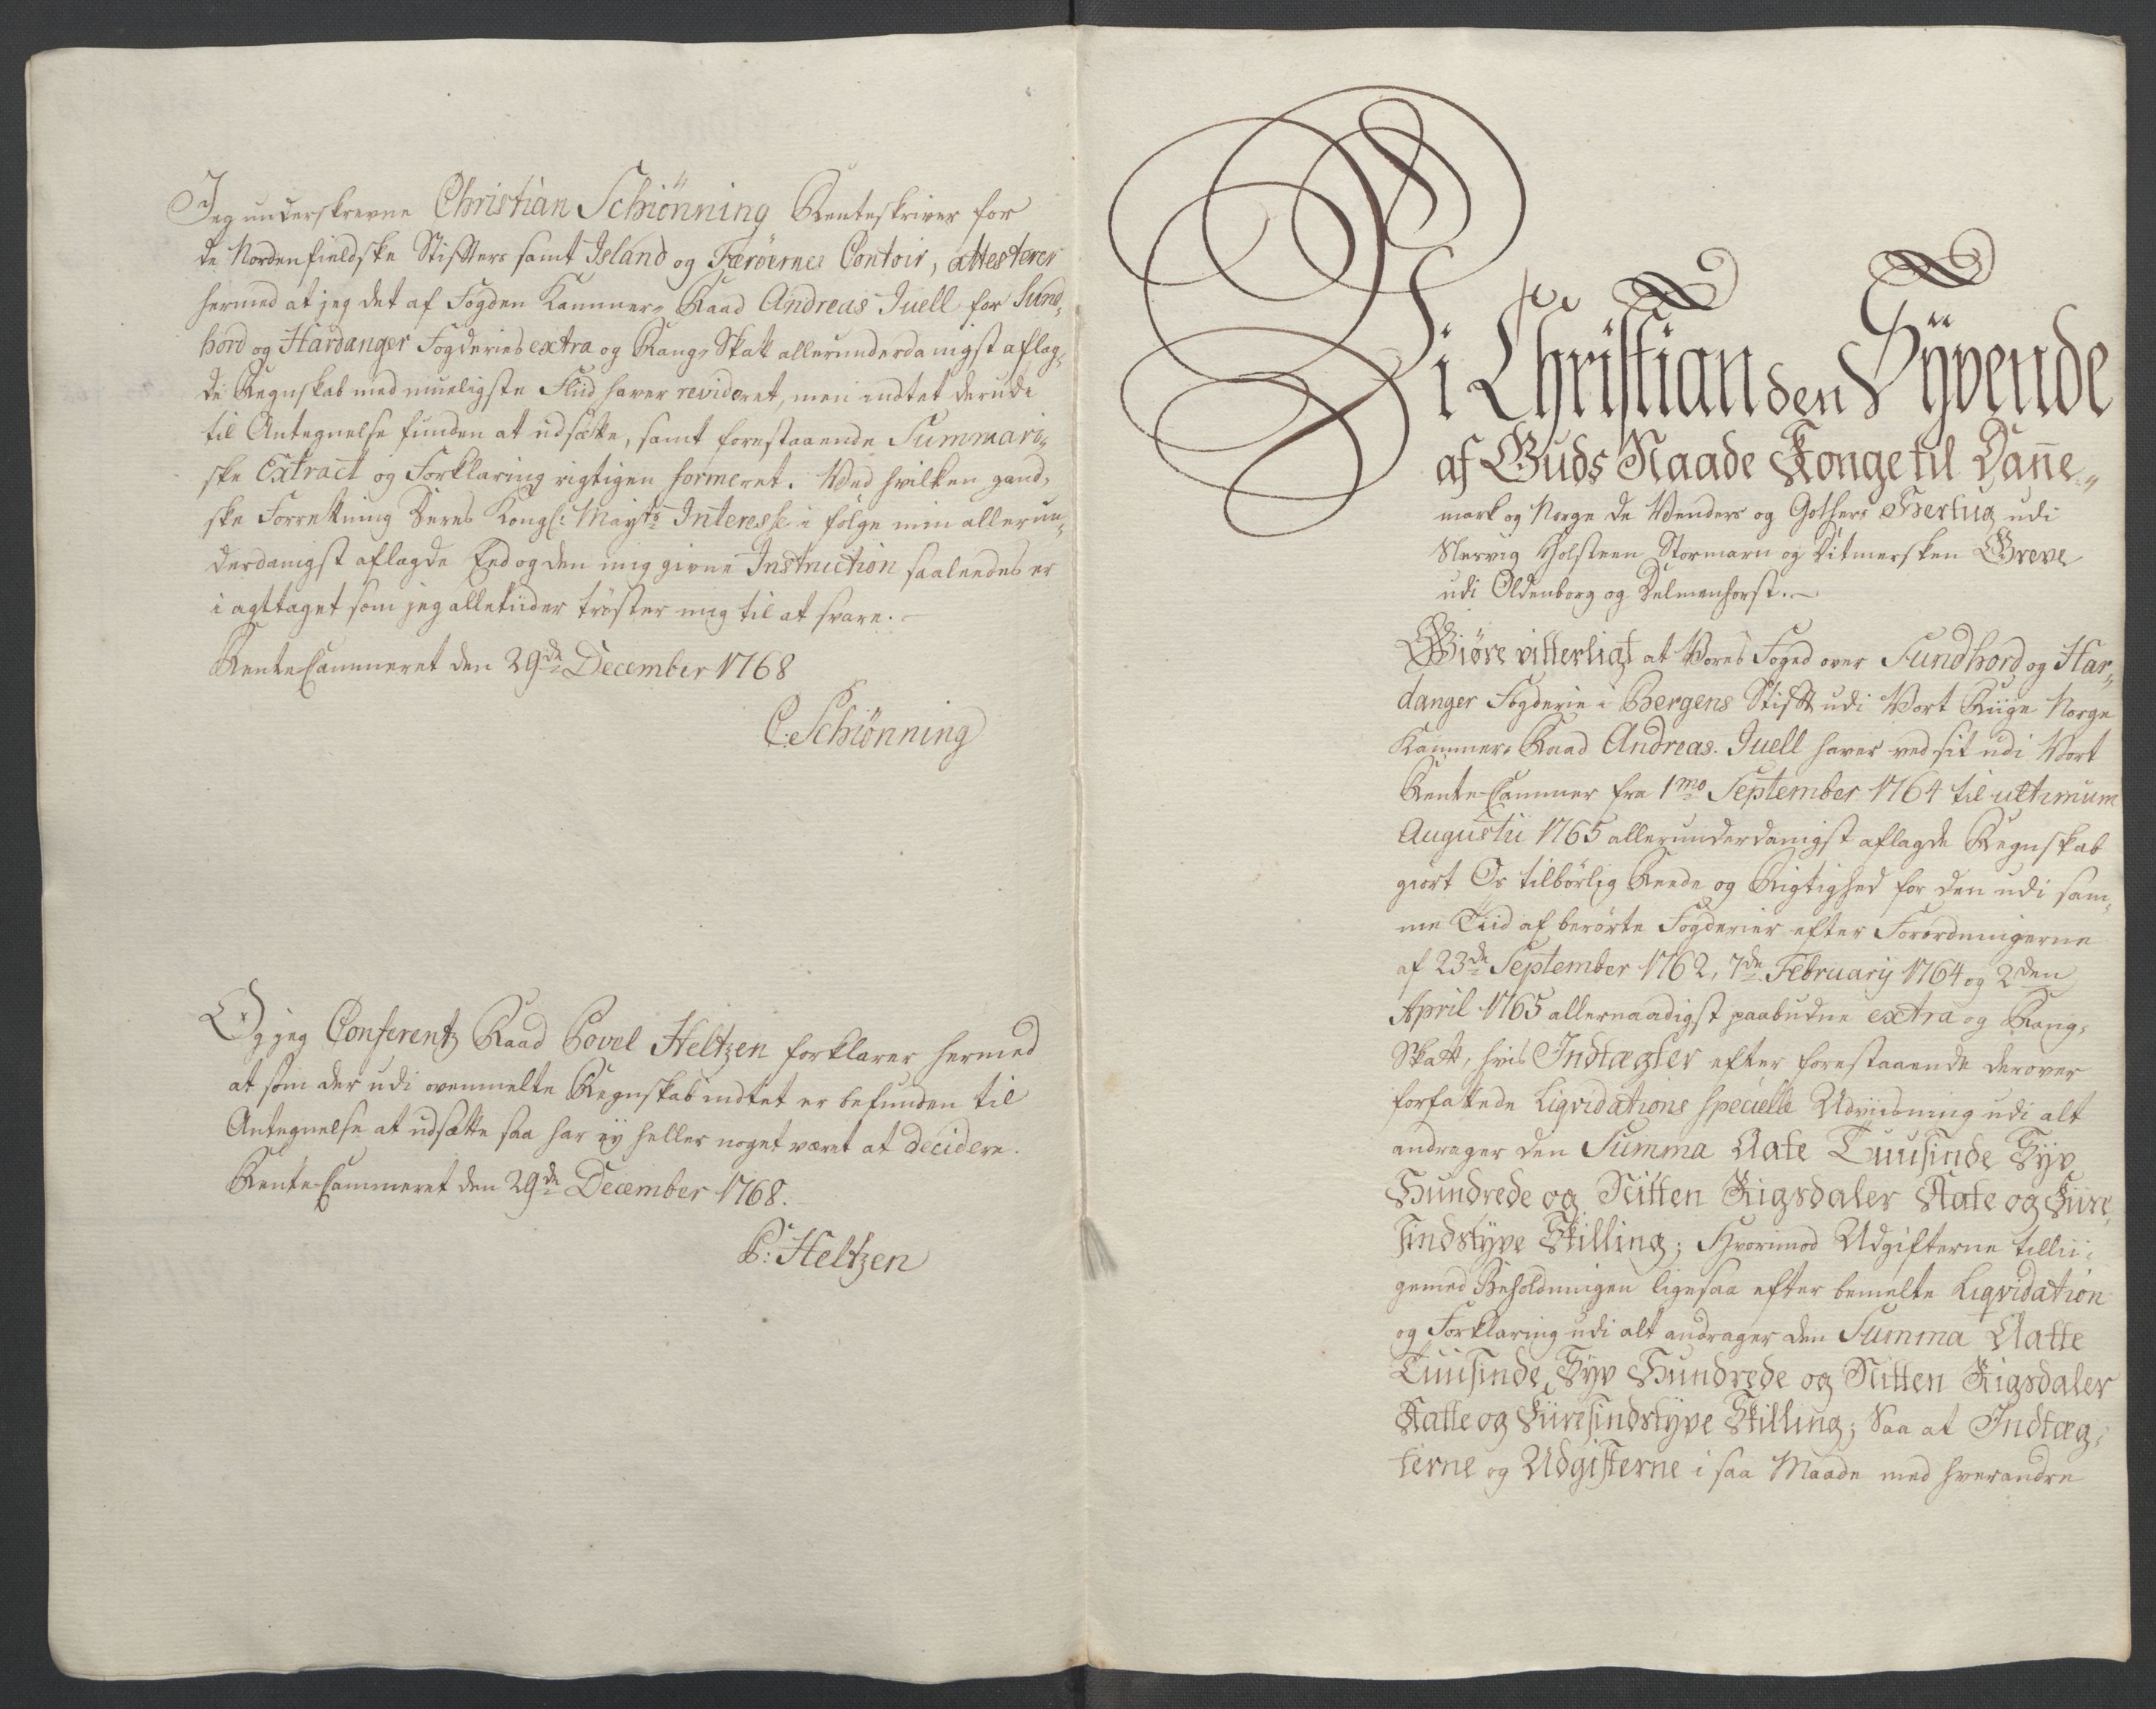 Jeg underskrevne Christian Schiönning Renteskriver for
de Nordenfieldske Stifters samt Island og Færöernes Contoir, attesterer
hermed at jeg det af Fogden Kammer-Raad Andreas Juell for Sund-
hord og Hardanger Fogderies extra og Rang-Skatt allerunderdanigst aflag-
de Regnskab med mueligste Fliid haver revideret, men indtet derudi
til Antegnelse funden at udsætte, samt forestaaende Summari-
ske Extract og Forklaring rigtigen formeret. Ved hvilken gand-
ske Forretning Deres Kongl: Mayts Interesse i følge min allerun-
derdanigst aflagde Eed og den mig givne Instruction saaledes er
i agttaget som jeg alletiider tröster mig til at svare.-
Rente Cammeret den 29de December 1768
C. Schiönning
Og jeg Conferentz Raad Povel Heltzen forklarer hermed
at som der udi ovenmelte Regnskab indtet er befunden til
Antegnelse at udsætte saa har ey heller noget været at decidere.
Rente-Cammeret den 29de December 1768.
P: Heltzen
Vi Christian den Syvende
af Guds Naade Konge til Danne-
mark og Norge de Venders og Gothers Hertug udi
Slesvig Holsteen Stormarn og Ditmersken Greve
udi Oldenborg og Delmenhorst.-
Giøre vitterligt at Vores Foged over Sundhord og Har-
danger Fogderie i Bergens Stift udi Vort Riige Norge
Kammer-Raad Andreas Juell haver ved sit udi Vort
Rente-Cammer fra 1mo September 1764 til ultimum
Augustii 1765 allerunderdanigst aflagde Regnskab
giort Os tilbörlig Reede og Rigtighed for den udi sam-
me Tiid af berörte Fogderier efter Forordningerne
af 23de September 1762, 7de February 1764 og 2den
April 1765 allernaadigst paabudne extra og Rang-
Skatt, hvis Indtægter efter forestaaende derover
forfattede Liqvidations specielle Udviisning udi alt
andrager den Summa Aate Tuusinde Syv
Hundrede og Nitten Rigsdaler Aate og Fiire-
sindstyve Skilling; Hvorimod Udgifterne tillii-
gemed Beholdningen ligesaa efter bemelte Liqvidation
og Forklaring udi alt andrager den Summa Aatte
Tuusinde Syv Hundrede og Nitten Rigsdaler
Aatte og Fiiresindstyve Skilling; Saa at Indtæg-
terne og Udgifterne i saa Maade med hverandre